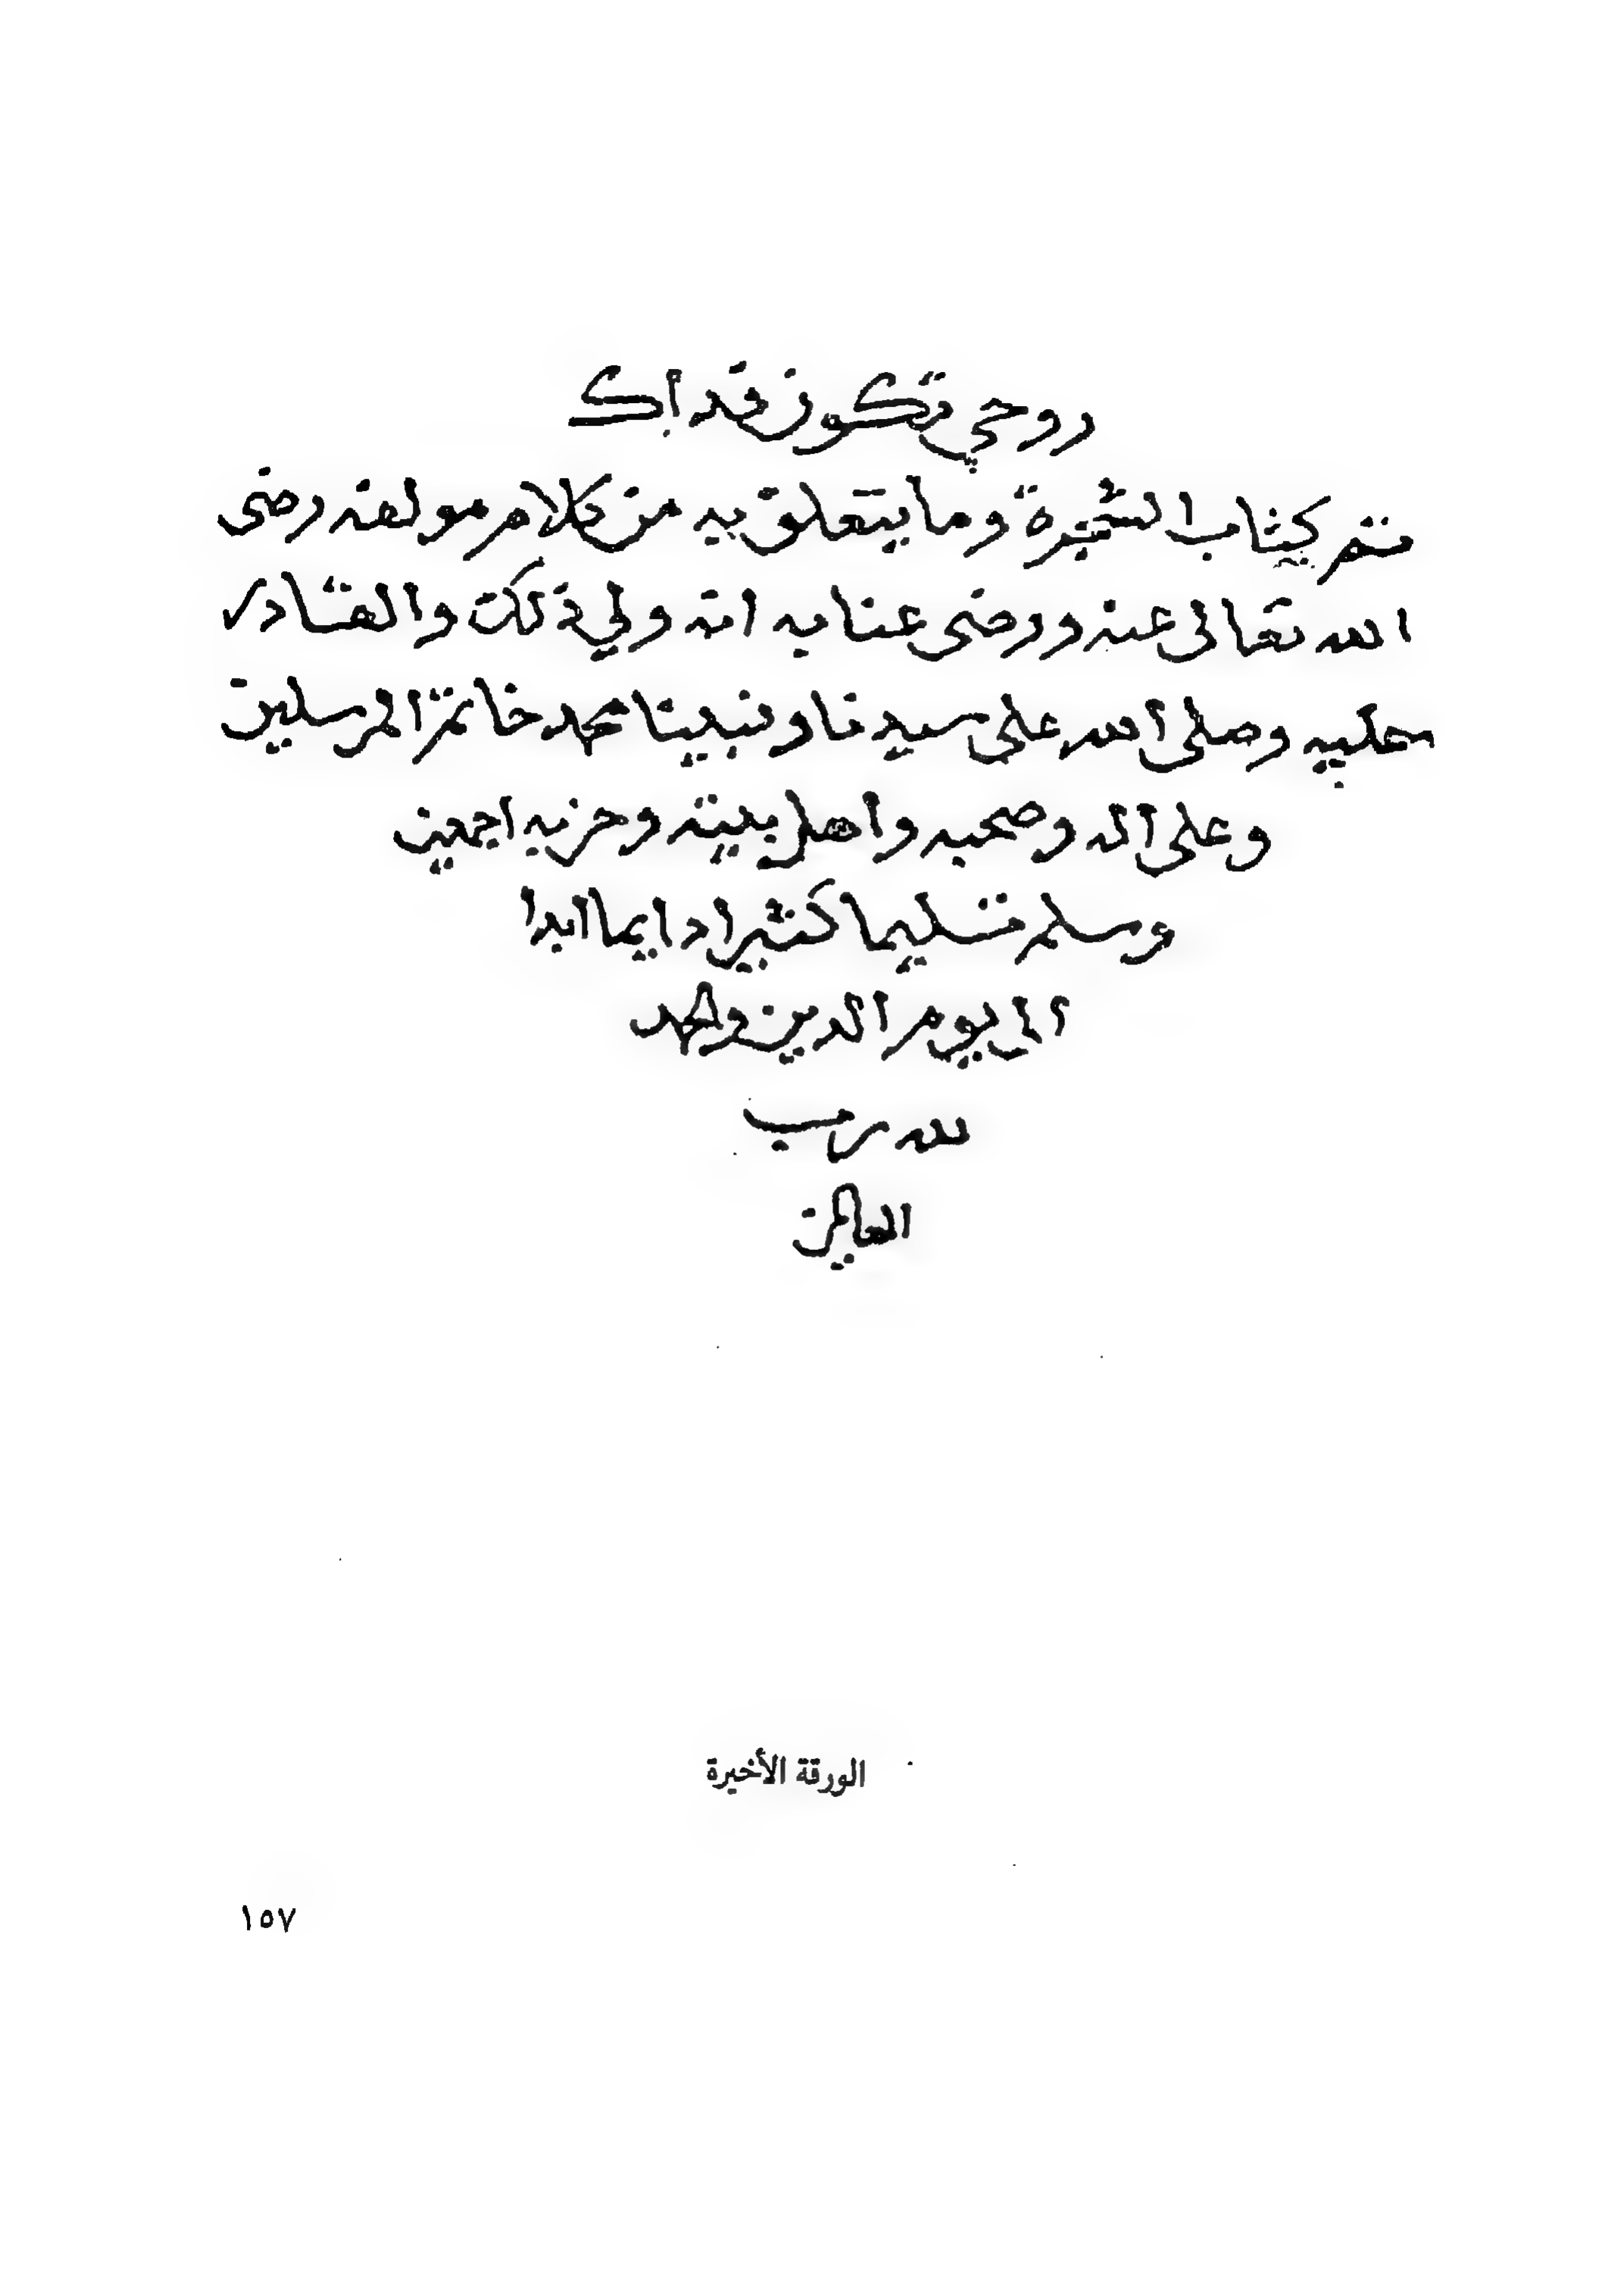 روحي تكون فداك
تم كتاب الشجرة وما يتعلق به من كلام مولفه رضى
الله تعالى عنه ورضى عنا به انه ولي ذلك والقادر
عليه وصلى الله على سيدنا ونبينا محمد خاتم المرسلين
وعلى اله وصحبه واهل بيته وحزبه اجمعين
وسلم تسليما كثيرا دايما ابدا
الى يوم الدين والحمد
لله رب
العالمين
الورقة الأخيرة
١٥٧